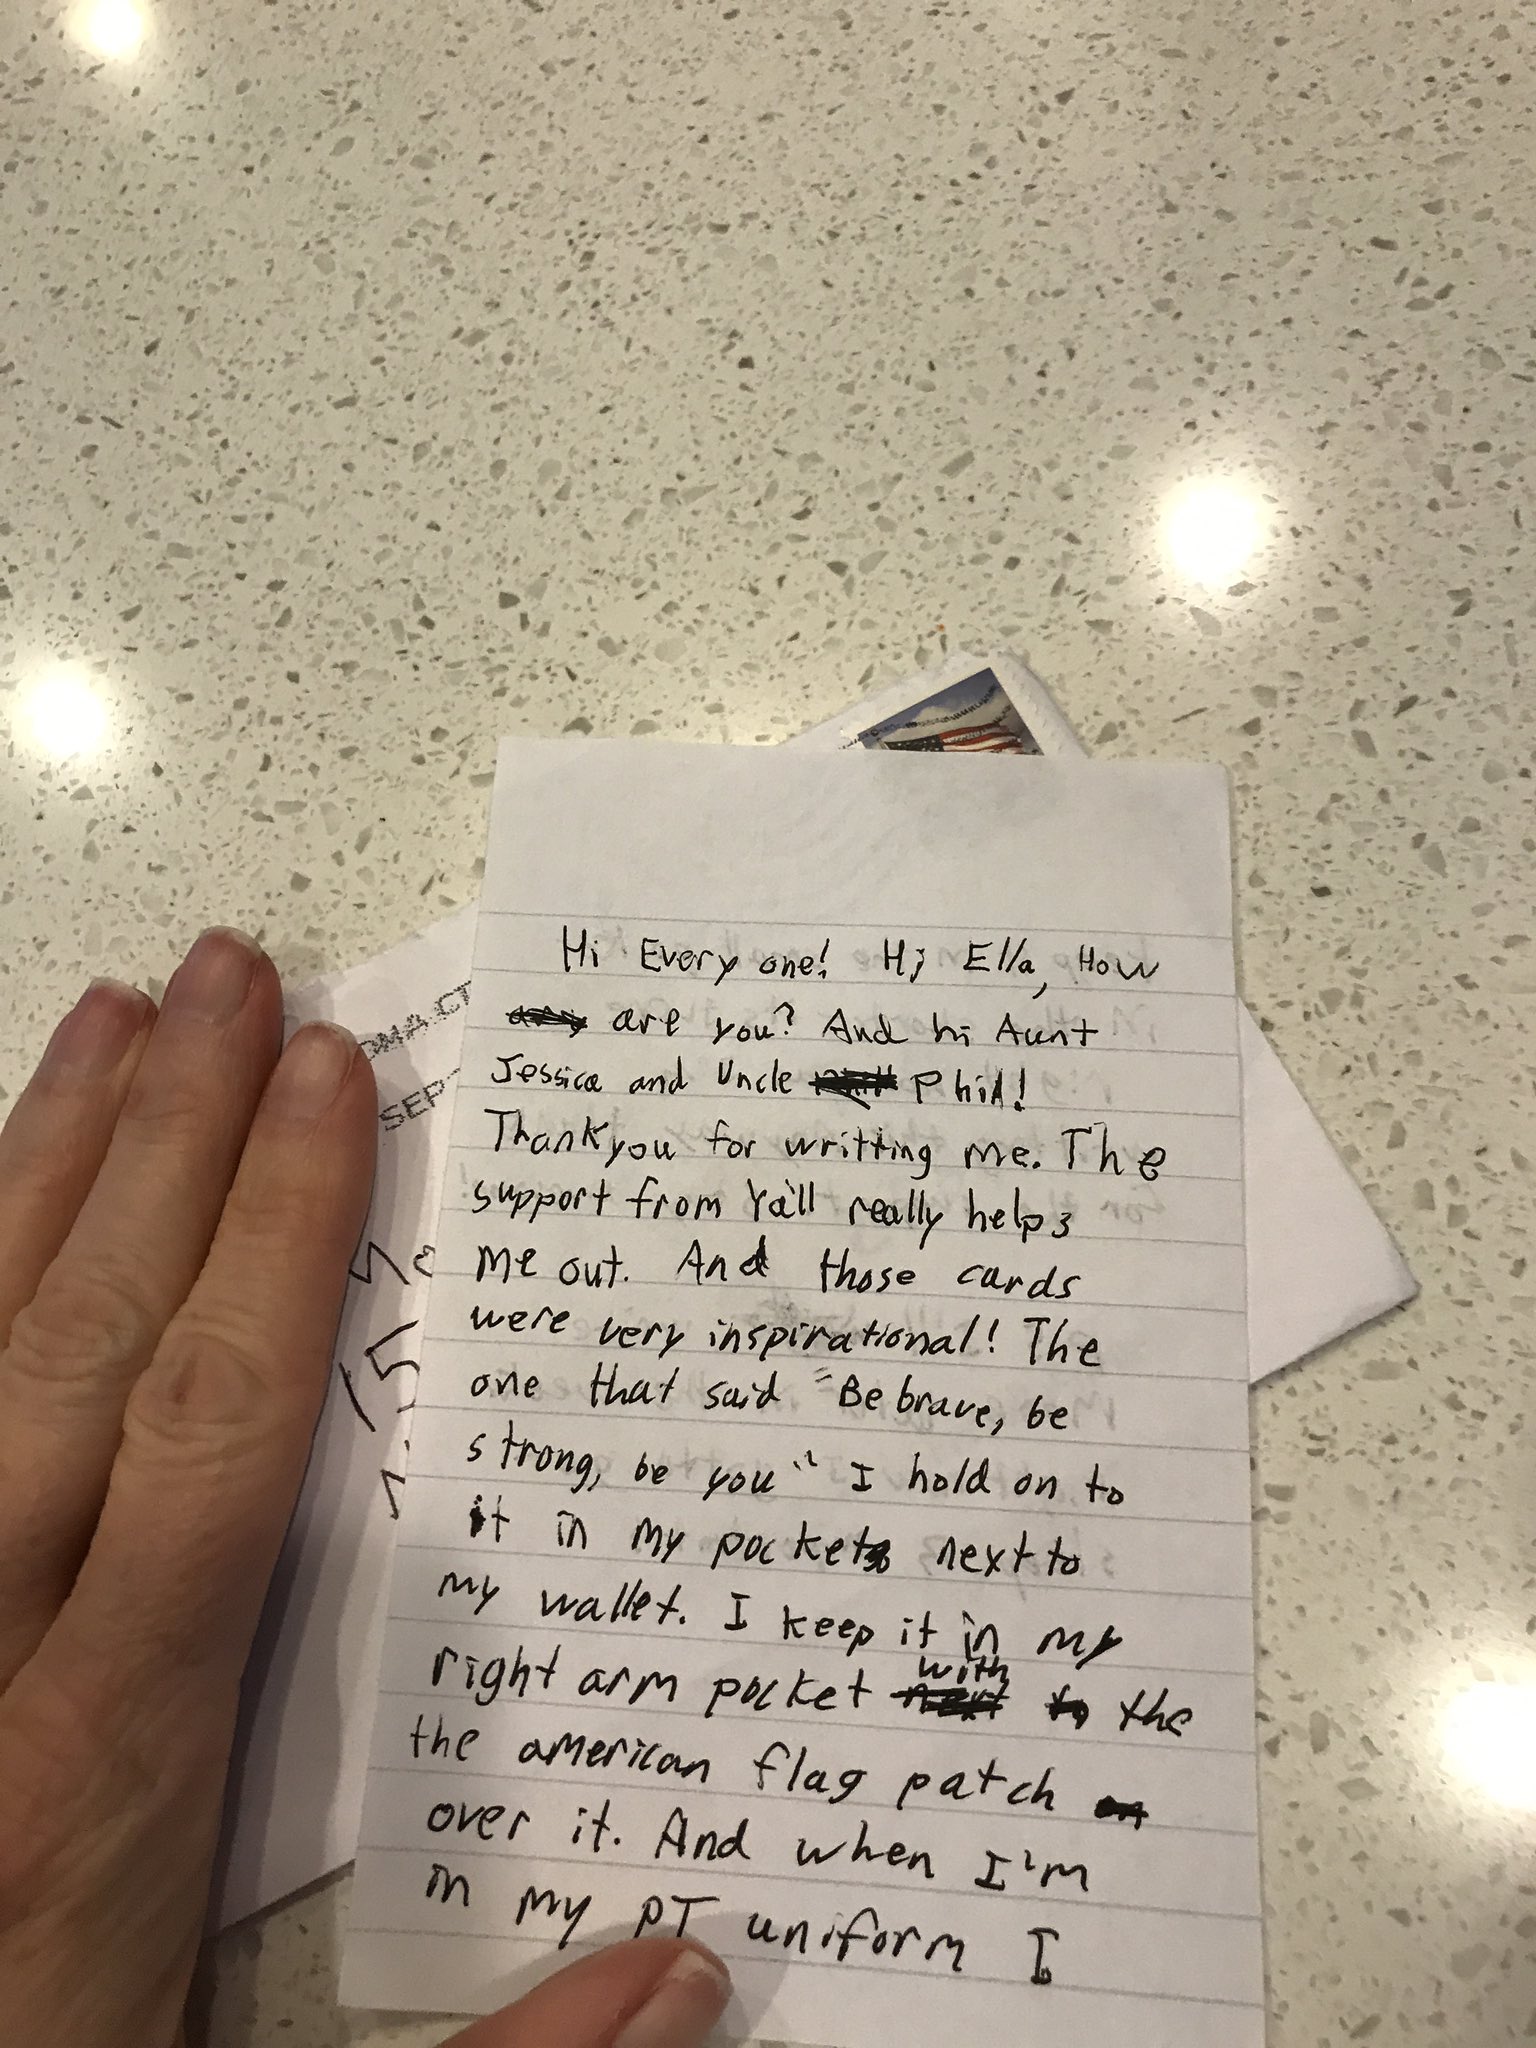 OMA CT
SEP
Hi Every one! Hi Ella, How
are you? And hi Aunt
Jessica and Uncle Phil!
Thankyou for writting me. The
support from Ya'll really helps
me out. And those cards
were very inspirational! The
one that said "Be brave, be
strong, be you" I hold on to
it in my pocket next to
my wallet. I keep it in my
right arm pocket with the
the american flag patch
over it. And when I'm
in my PT uniform I